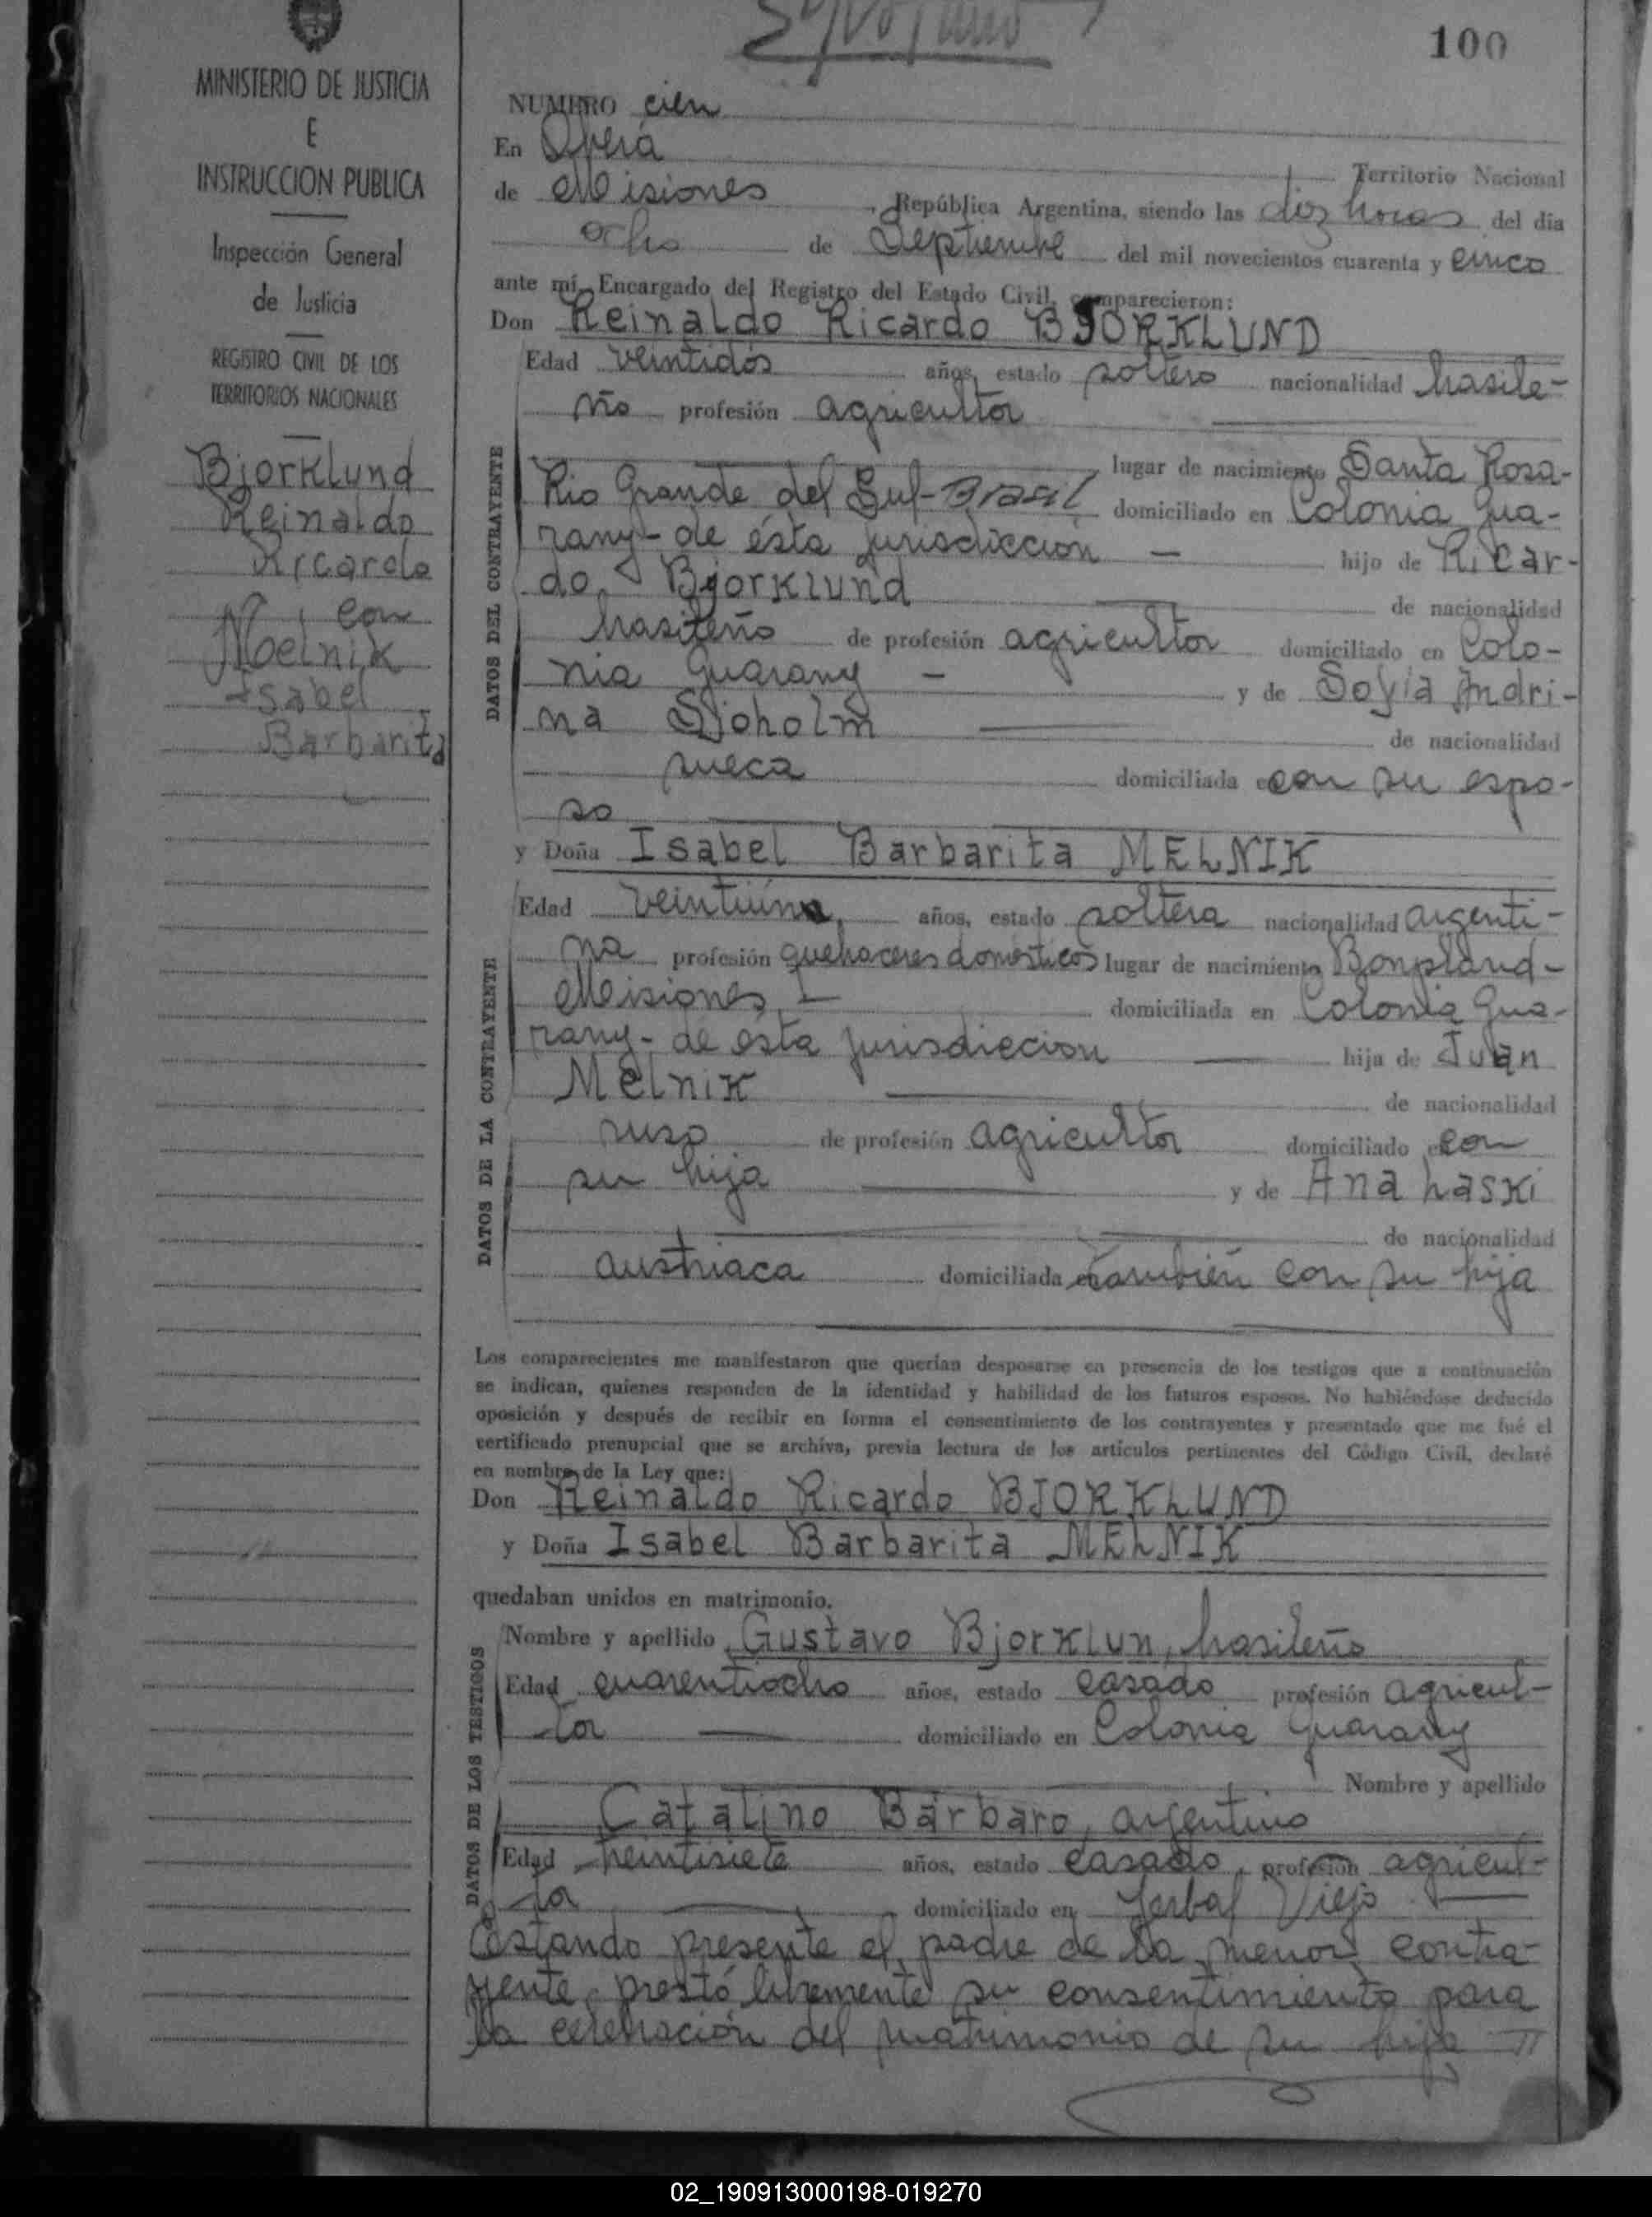 100
MINISTERIO DE JUSTICIA
E
INSTRUCCION PUBLICA
Inspección General
de Justicia
REGISTRO CIVIL DE LOS
TERRITORIOS NACIONALES
Bjorklund
Reinaldo
Ricardo
con
Melnik
Isabel
Barbarita
NUMERO cien
En Oberá Territorio Nacional
de Misiones República Argentina, siendo las diez horas del día
ocho de Septiembre del mil novecientos cuarenta y cinco
ante mí, Encargado del Registro del Estado Civil, comparecieron:
Don Reinaldo Ricardo BJORKLUND
DATOS DEL CONTRAYENTE
Edad veintidós años, estado soltero nacionalidad brasile-
ño profesión agricultor
lugar de nacimiento Santa Rosa-
Rio Grande del Sul-Brasil domiciliado en Colonia Gua-
rany- de ésta jurisdicción - hijo de Ricar-
do Bjorklund de nacionalidad
brasileño de profesión agricultor domiciliado en Colo-
nia Guarany - y de Sofia Andri-
na Sjoholm de nacionalidad
sueca domiciliada con su espo-
so
y Doña Isabel Barbarita MELNIK
DATOS DE LA CONTRAYENTE
Edad veintiuna años, estado soltera nacionalidad argenti-
na profesión quehaceres domesticos lugar de nacimiento Bonpland-
Misiones - domiciliada en Colonia Gua-
rany- de esta jurisdiccion hija de Juan
Melnik de nacionalidad
ruso de profesión agricultor domiciliado con
su hija y de Ana Laski
de nacionalidad
austriaca domiciliada también con su hija
Los comparecientes me manifestaron que querían desposarse en presencia de los testigos que a continuación
se indican, quienes responden de la identidad y habilidad de los futuros esposos. No habiéndose deducido
oposición y después de recibir en forma el consentimiento de los contrayentes y presentado que me fué el
certificado prenupcial que se archiva, previa lectura de los artículos pertinentes del Código Civil, declaré
en nombre de la Ley que:
Don Reinaldo Ricardo BJORKLUND
y Doña Isabel Barbarita MELNIK
quedaban unidos en matrimonio.
DATOS DE LOS TESTIGOS
Nombre y apellido Gustavo Bjorklun, brasileño
Edad cuarentiocho años, estado casado profesión agricul-
tor domiciliado en Colonia Guarany
Nombre y apellido
Catalino Bárbaro, argentino
Edad veintisiete años, estado casado, profesión agricul-
tor domiciliado en Yerbal Viejo
Estando presente el padre de la menor contra-
yente, prestó libremente su consentimiento para
la celebración del matrimonio de su hija
02_190913000198-019270